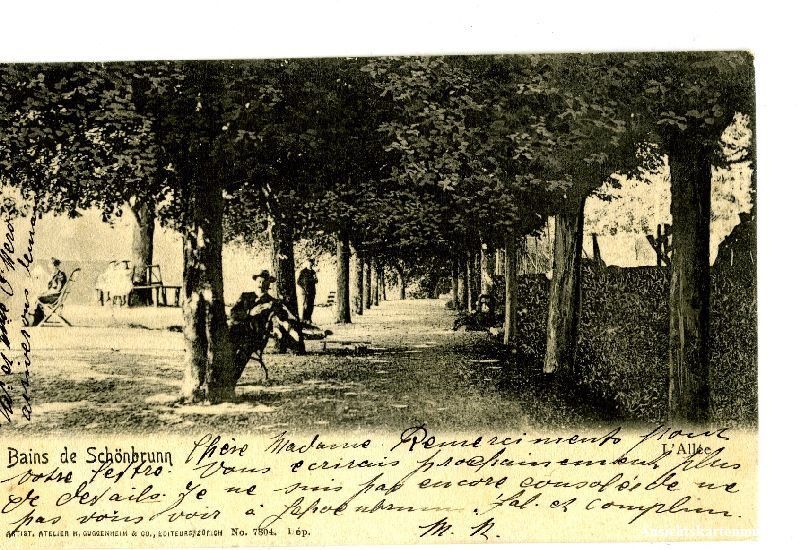 Bains de Schönbrunn
L'Allée
Chère Madame. Remerciments pour
votre lettre. Vous écrirais prochainement plus
de details. Je ne suis pas encore consolée de ne
pas vous voir à Schoenbrunn. Sal. et Complim.
M. R.
ARTIST. ATELIER H. GUGGENHEIM & CO., EDITEURS, ZÜRICH No. 7804. Dép.